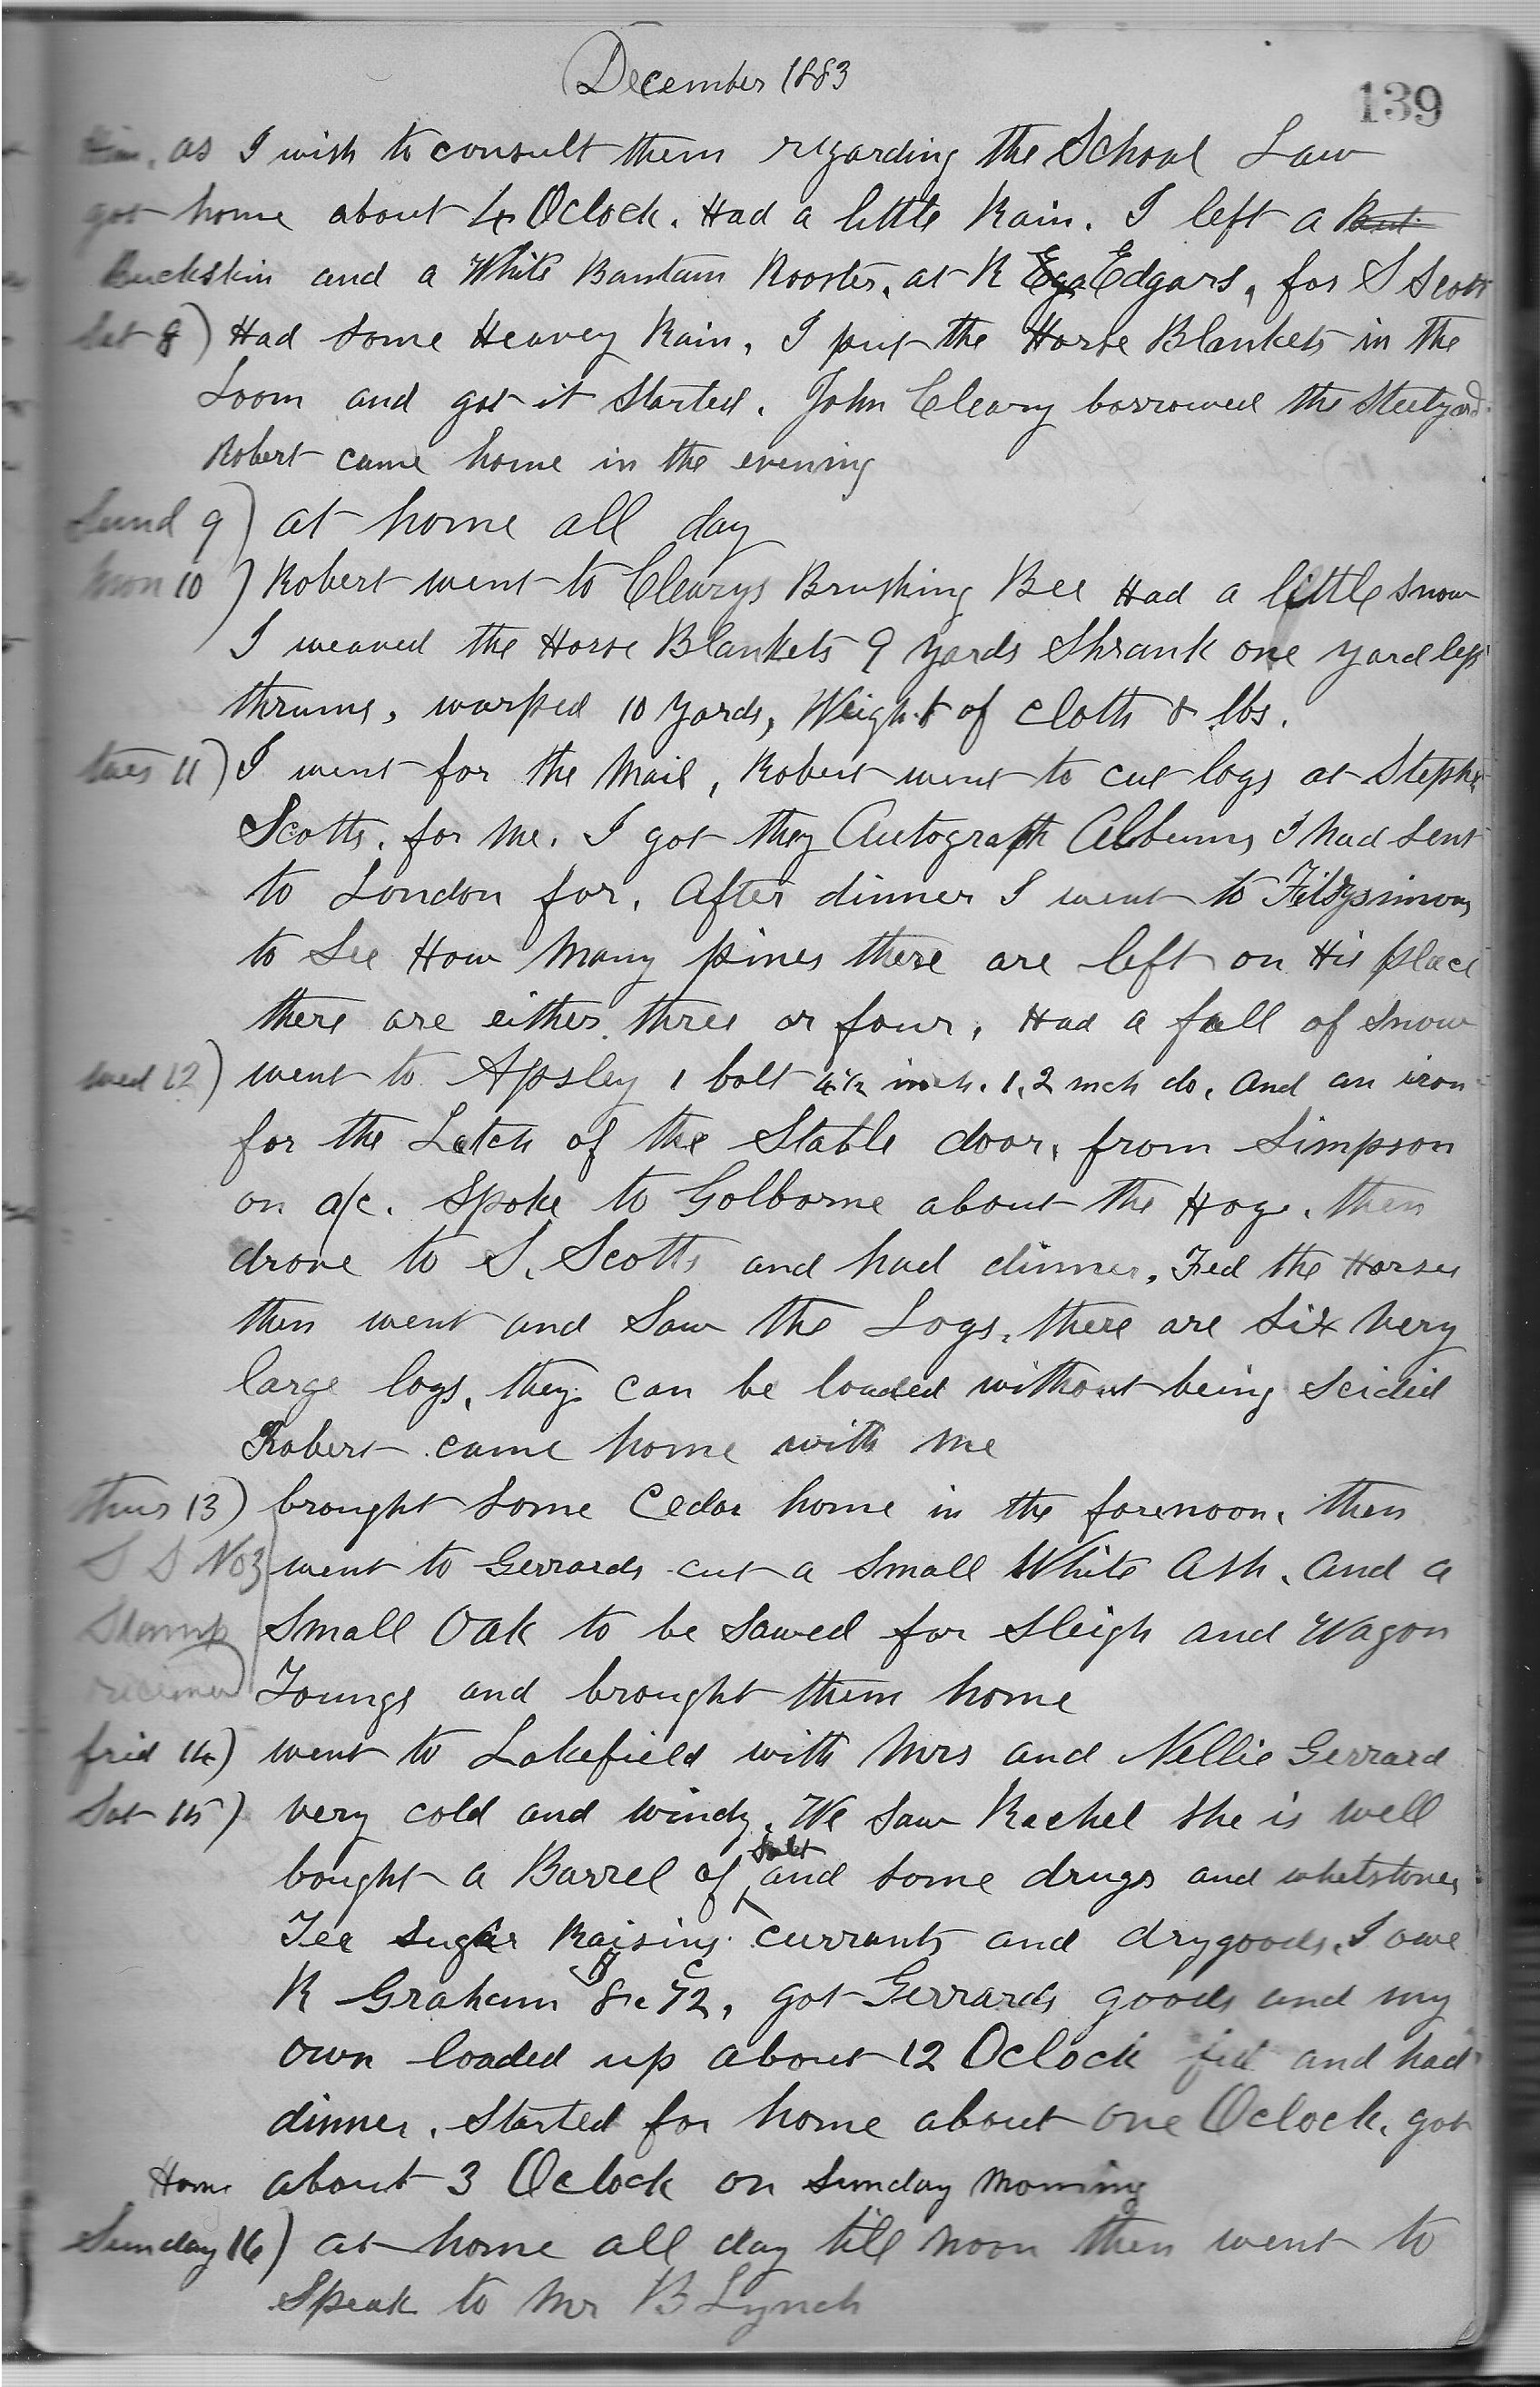 December 1883
139
him, as I wish to consult them regarding the School Law
got home about 4 Oclock. Had a little Rain. I left a
Buckskin and a White Bantam Rooster, at R Edgars, for S Scott
Sat 8) Had Some Heavey Rain, I put the Horse Blankets in the
Loom and got it Started. John Cleary borrowed the Steelyard.
Robert came home in the evening
Sund 9) at home all day
Mon 10) Robert went to Clearys Brushing Bee Had a little Snow
I weaved the Horse Blankets 9 yards Shrank one yard less
thrums, warped 10 yards, Weight of cloth 8 lbs.
tues 11) I went for the Mail, Robert went to cut logs at Stephn
Scotts, for me. I got they Autograph Albums I had sent
to London for. After dinner I went to Fitszsimons
to See How Many pines there are left on His place
there are either three or four. Had a fall of Snow
wed 12) went to Apsley 1 bolt 4½ inch. 1, 2 inch do, And an iron
for the Latch of the Stable door, from Simpson
on a/c. Spoke to Golborne about the Hogs. then
drove to S. Scotts and had dinner, Fed the Horses
then went and Saw the Logs, there are Six Very
large logs, they can be loaded without being Scidid
Robert came home with me
thurs 13) brought Some Cedar home in the forenoon, then
S S No 3 went to Gerrards cut a Small White Ash, And a
Stamp Small Oak to be Sawed for Sleigh and Wagon
received Toungs and brought them home
frid 14) went to Lakefield with Mrs and Nellie Gerrard
Sat 15) very cold and windy. We Saw Rachel She is well
bought a Barrel of Salt and Some drugs and whetstones
Tea Sugar Raisins currants and drygoods. I owe
R Graham $8.72c, got Gerrards goods and my
own loaded up about 12 Oclock fed and had
dinner. Started for home about one Oclock, got
Home about 3 Oclock on Sunday Morning
Sunday 16) at home all day till noon then went to
Speak to Mr B Lynch